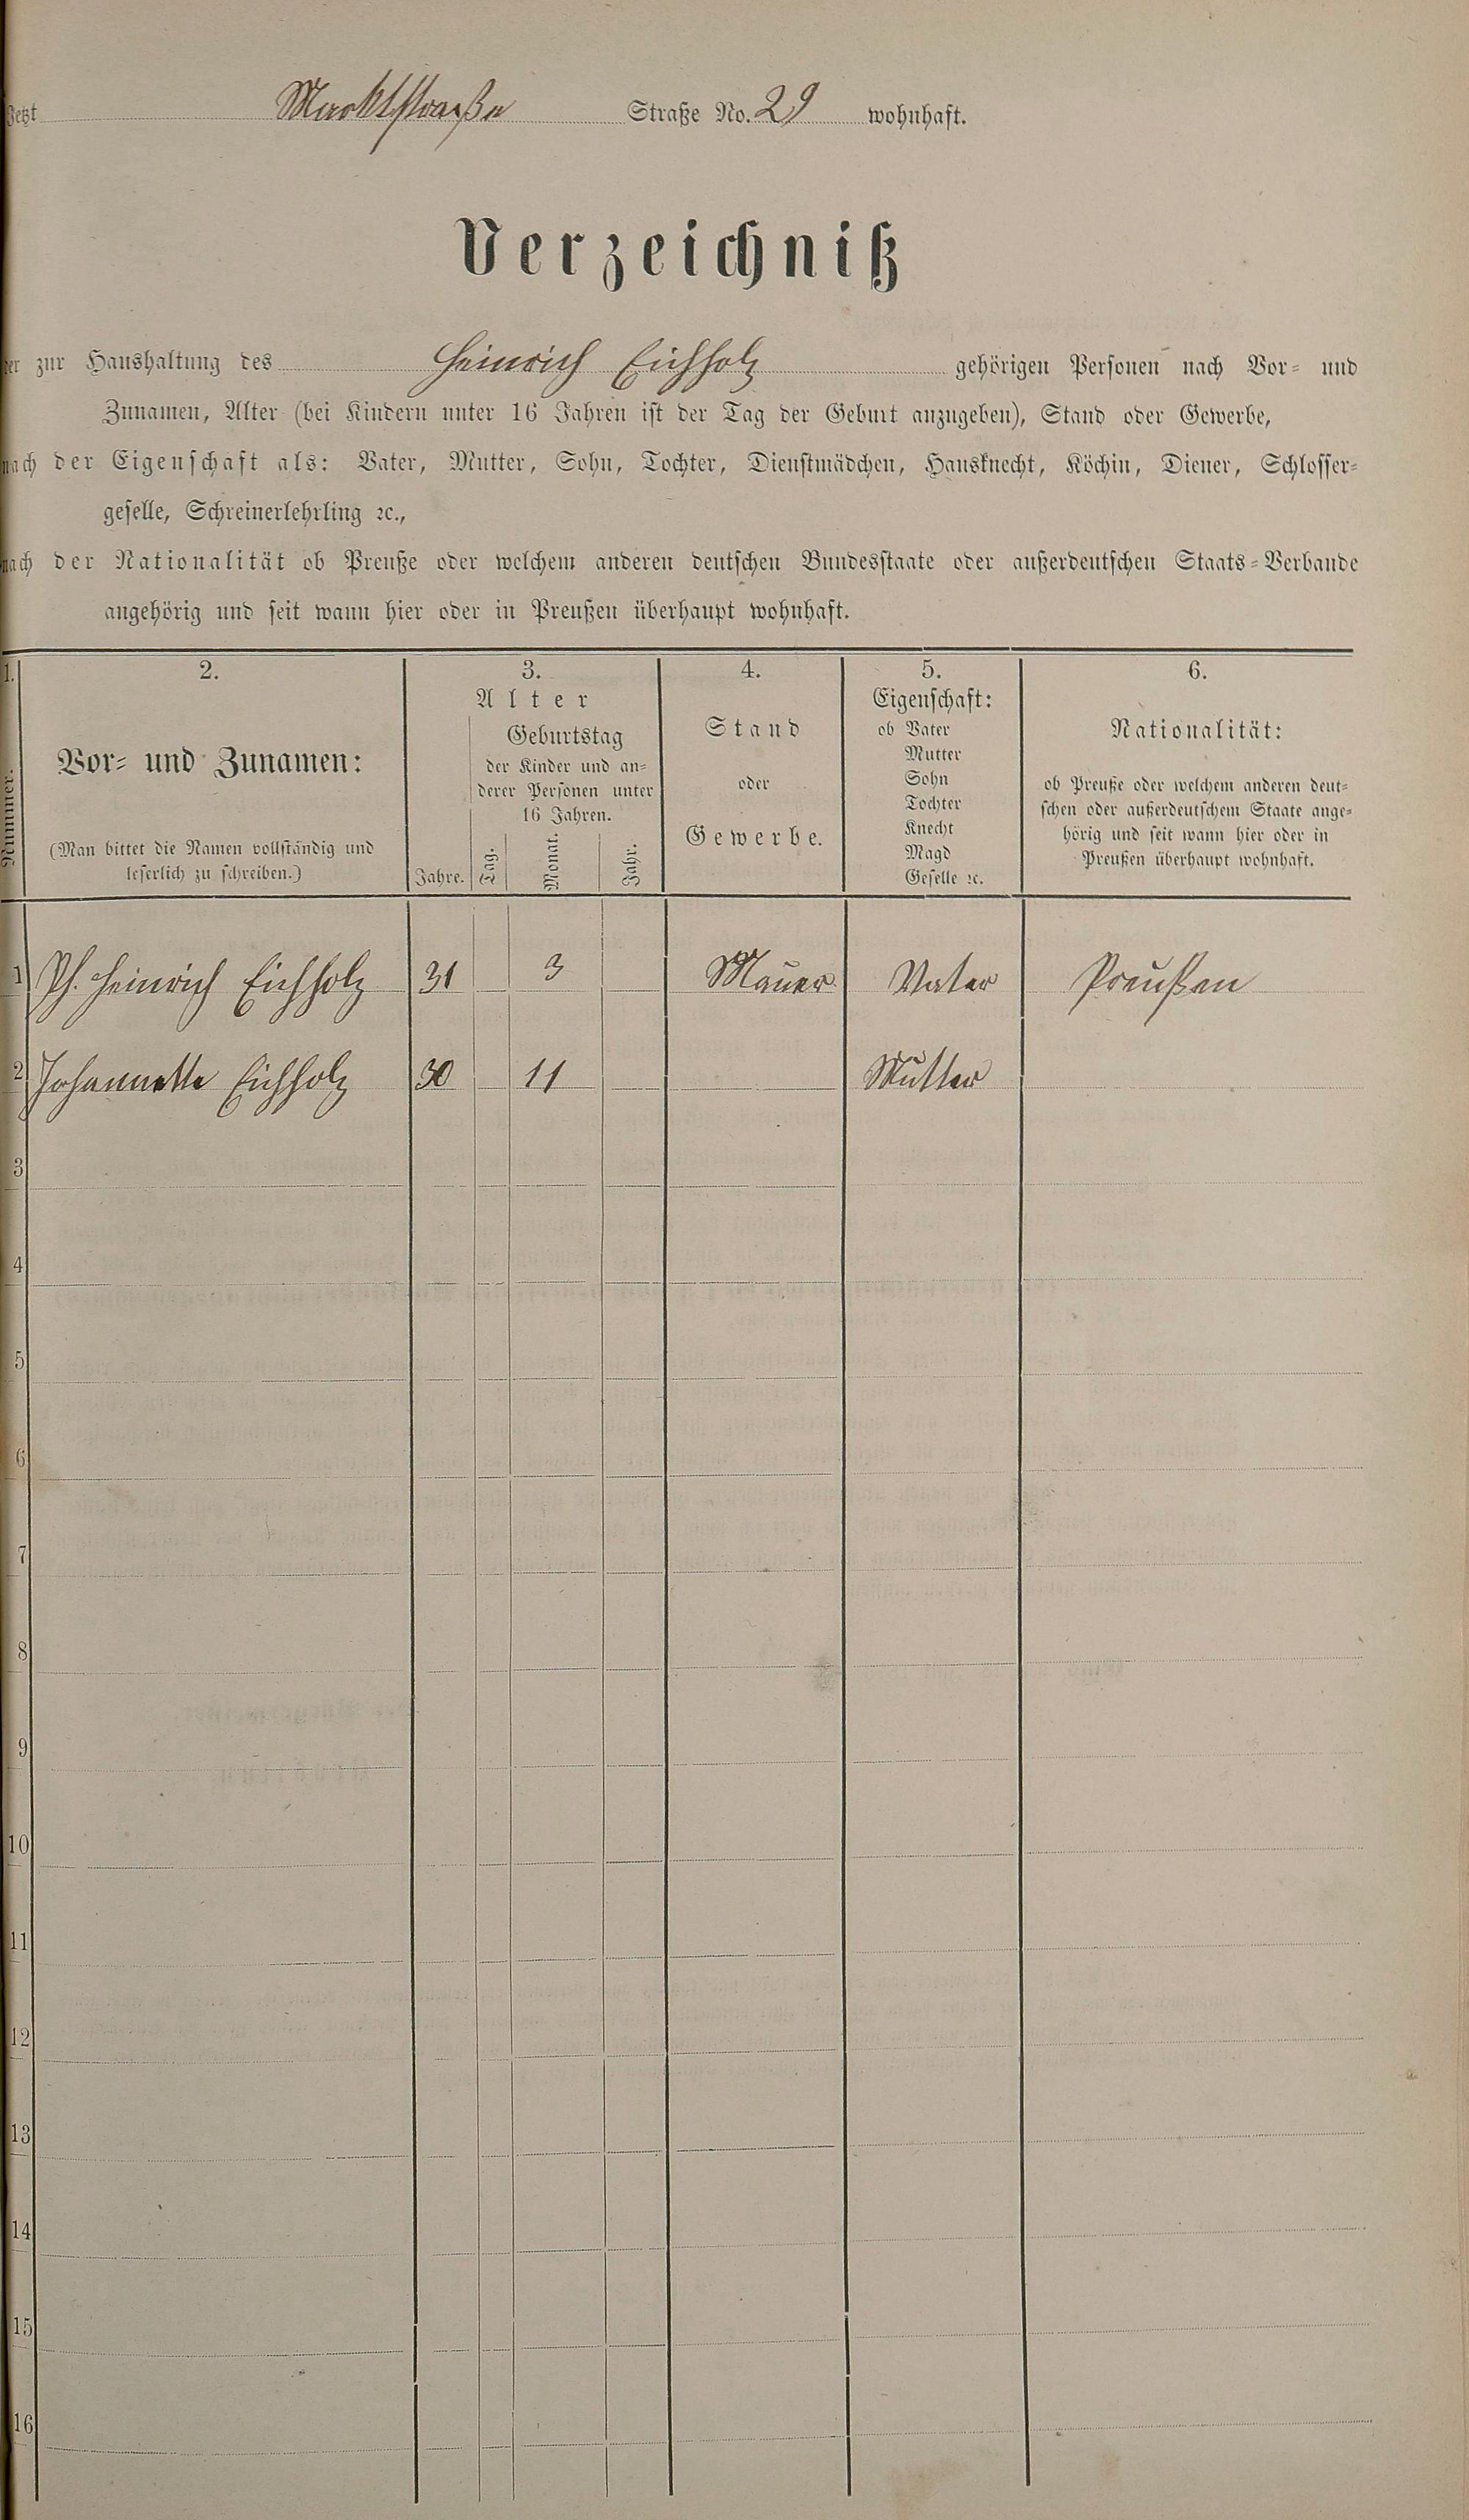 Jetzt Marktstraße Straße No. 29 wohnhaft.
Verzeichniß
der zur Haushaltung des Heinrich Eichholz gehörigen Personen nach Vor- und
Zunamen, Alter (bei Kindern unter 16 Jahren ist der Tag der Geburt anzugeben), Stand oder Gewerbe,
nach der Eigenschaft als: Vater, Mutter, Sohn, Tochter, Dienstmädchen, Hausknecht, Köchin, Diener, Schlosser-
geselle, Schreinerlehrling ꝛc.,
nach der Nationalität ob Preuße oder welchem anderen deutschen Bundesstaate oder außerdeutschen Staats-Verbande
angehörig und seit wann hier oder in Preußen überhaupt wohnhaft.
1.
Nummer.
2.
Vor- und Zunamen:
(Man bittet die Namen vollständig und
leserlich zu schreiben.)
3.
Alter
Jahre.
Geburtstag
der Kinder und an-
derer Personen unter
16 Jahren.
Tag.
Monat.
Jahr.
4.
Stand
oder
Gewerbe.
5.
Eigenschaft:
ob Vater
Mutter
Sohn
Tochter
Knecht
Magd
Geselle ꝛc.
6.
Nationalität:
ob Preuße oder welchem anderen deut-
schen oder außerdeutschem Staate ange-
hörig und seit wann hier oder in
Preußen überhaupt wohnhaft.
1 Ph. Heinrich Eichholz 31 3 Mauer Vater Preußen
2 Johannette Eichholz 30 11 Mutter
3
4
5
6
7
8
9
10
11
12
13
14
15
16